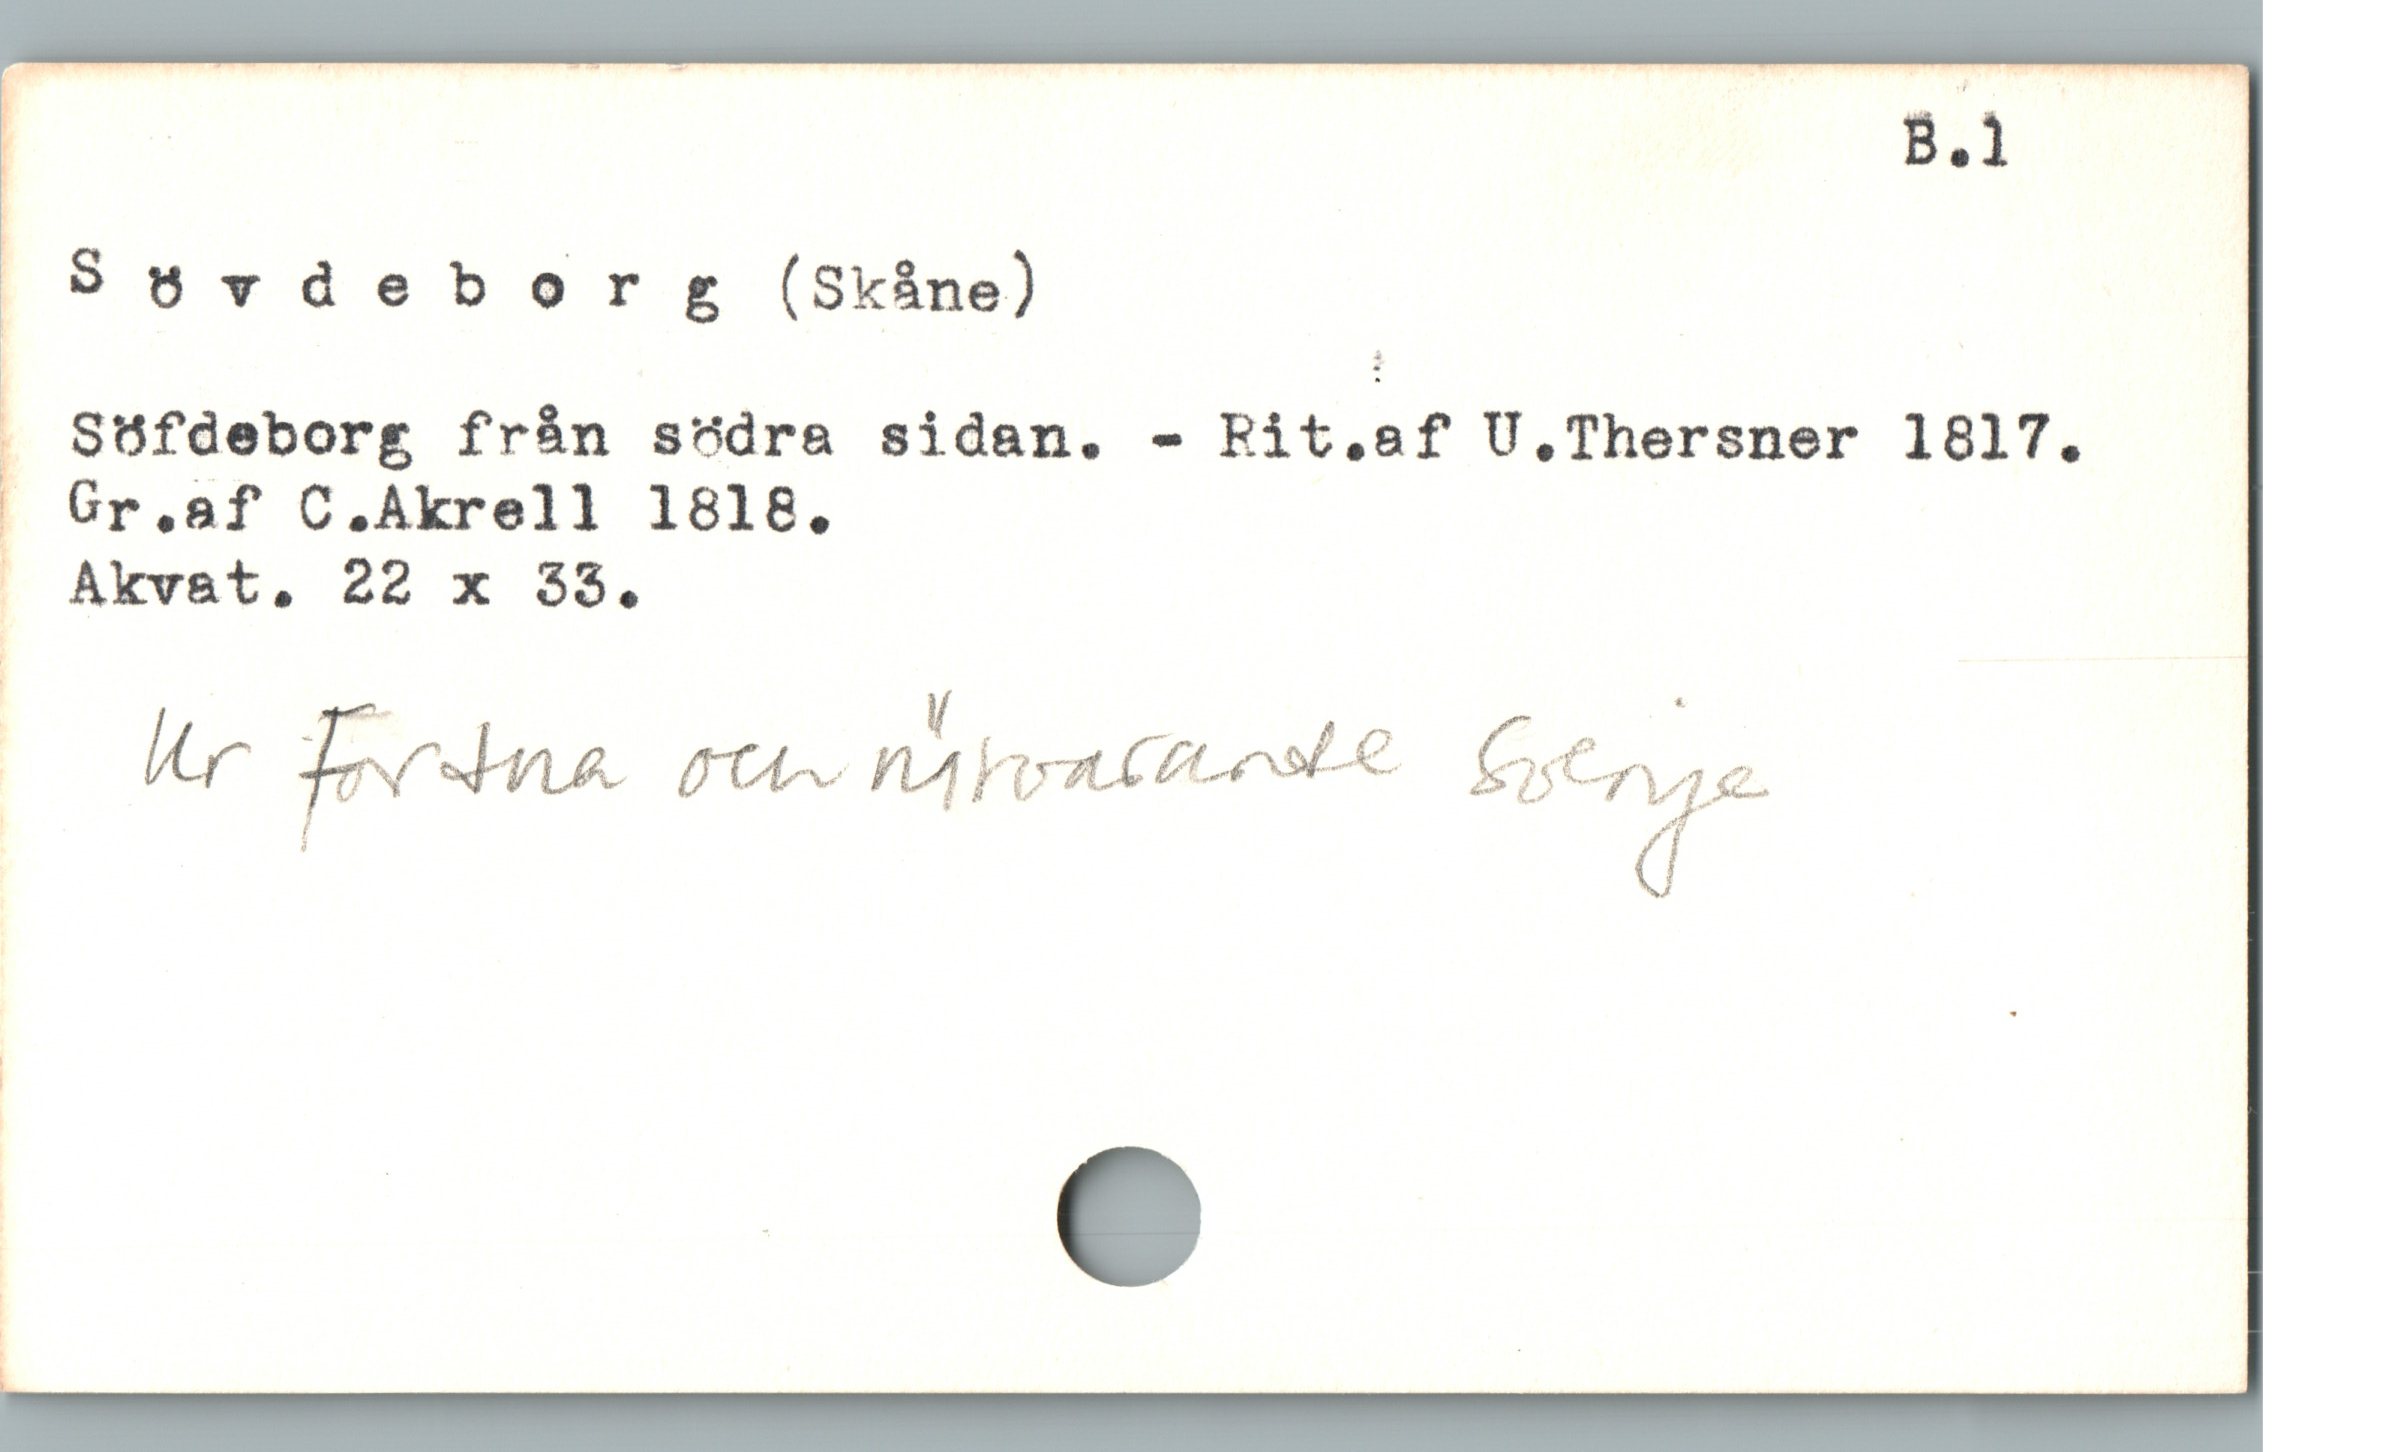 B.1
S ö v d e b o r g (Skåne)
Söfdeborg från södra sidan. - Rit.af U.Thersner 1817.
Gr.af C.Akrell 1818.
Akvat. 22 x 33.
Ur Fordna och närvarande Sverige